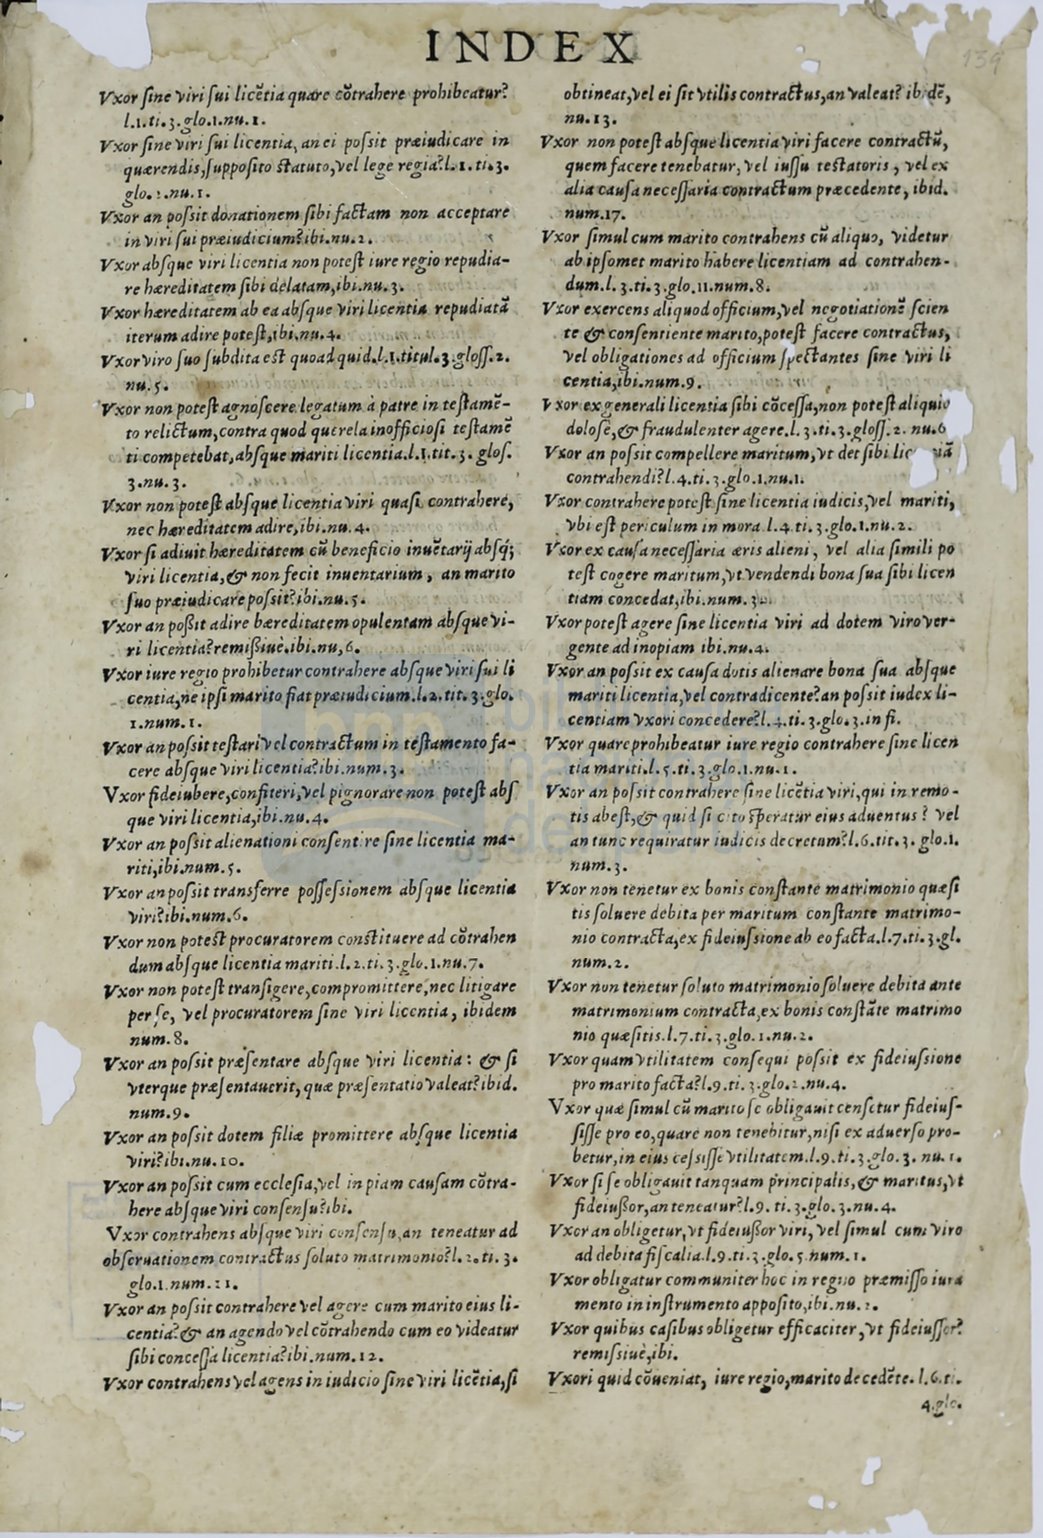 INDEX
139
Vxor sine viri sui licẽtia quare cõtrahere prohibeatur?
l.1.ti.3.glo.1.nu.1.
Vxor sine viri sui licentia, an ei possit præiudicare in
quærendis, supposito statuto, vel lege regia? l.1.ti.3.
glo. .nu.1.
Vxor an possit donationem sibi factam non acceptare
in viri sui præiudicium? ibi.nu.2.
Vxor absque viri licentia non potest iure regio repudia-
re hæreditatem sibi delatam, ibi.nu.3.
Vxor hæreditatem ab ea absque viri licentia repudiatã
iterum adire potest, ibi.nu.4.
Vxor viro suo subdita est quoad quid.l.1.titul.3.gloss.2.
nu.5.
Vxor non potest agnoscere legatum à patre in testamẽ-
to relictum, contra quod querela inofficiosi testamẽ
ti competebat, absque mariti licentia.l.1.tit.3. glos.
3.nu.3.
Vxor non potest absque licentia viri quasi contrahere,
nec hæreditatem adire, ibi.nu.4.
Vxor si adiuit hæreditatem cũ beneficio inuẽtarij absq́;
viri licentia, & non fecit inuentarium, an marito
suo præiudicare possit? ibi.nu.5.
Vxor an possit adire hæreditatem opulentam absque vi-
ri licentia? remissiuè. ibi.nu,6.
Vxor iure regio prohibetur contrahere absque viri sui li
centia, ne ipsi marito fiat præiudicium.l.2.tit.3.glo.
1.num.1.
Vxor an possit testari vel contractum in testamento fa-
cere absque viri licentia? ibi.num.3.
Vxor fideiubere, confiteri, vel pignorare non potest abs
que viri licentia, ibi.nu.4.
Vxor an possit alienationi consentire sine licentia ma-
riti, ibi.num.5.
Vxor an possit transferre possessionem absque licentia
viri? ibi.num.6.
Vxor non potest procuratorem constituere ad cõtrahen
dum absque licentia mariti.l.2.ti.3.glo.1.nu.7.
Vxor non potest transigere, compromittere, nec litigare
per se, vel procuratorem sine viri licentia, ibidem
num.8.
Vxor an possit præsentare absque viri licentia: & si
vterque præsentauerit, quæ præsentatio valeat? ibid.
num.9.
Vxor an possit dotem filiæ promittere absque licentia
viri? ibi.nu.10.
Vxor an possit cum ecclesia, vel in piam causam cõtra-
here absque viri consensu? ibi.
Vxor contrahens absque viri consensu, an teneatur ad
obseruationem contractus soluto matrimonio? l.2.ti.3.
glo.1.num.11.
Vxor an possit contrahere vel agere cum marito eius li-
centia? & an agendo vel cõtrahendo cum eo videatur
sibi concessa licentia? ibi.num.12.
Vxor contrahens vel agens in iudicio sine viri licẽtia, si
obtineat, vel ei sit vtilis contractus, an valeat? ibidẽ,
nu.13.
Vxor non potest absque licentia viri facere contractũ,
quem facere tenebatur, vel iussu testatoris, vel ex
alia causa necessaria contractum præcedente, ibid.
num.17.
Vxor simul cum marito contrahens cũ aliquo, videtur
ab ipsomet marito habere licentiam ad contrahen-
dum.l.3.ti.3.glo.11.num.8.
Vxor exercens aliquod officium, vel negotiationẽ scien
te & consentiente marito, potest facere contractus,
vel obligationes ad officium spectantes sine viri li
centia, ibi.num.9.
Vxor ex generali licentia sibi cõcessa, non potest aliquid
dolosè, & fraudulenter agere.l.3.ti.3.gloss.2. nu.6
Vxor an possit compellere maritum, vt det sibi
contrahendi? l.4.ti.3.glo.1.nu.1.
Vxor contrahere potest sine licentia iudicis, vel mariti,
vbi est periculum in mora.l.4.ti.3.glo.1.nu.2.
Vxor ex causa necessaria æris alieni, vel alia simili po
test cogere maritum, vt vendendi bona sua sibi licen
tiam concedat, ibi.num.3.
Vxor potest agere sine licentia viri ad dotem viro ver-
gente ad inopiam ibi.nu.4.
Vxor an possit ex causa dotis alienare bona sua absque
mariti licentia, vel contradicente? an possit iudex li-
centiam vxori concedere? l.4.ti.3.glo.3.in fi.
Vxor quare prohibeatur iure regio contrahere sine licen
tia mariti.l.5.ti.3.glo.1.nu.1.
Vxor an possit contrahere sine licẽtia viri, qui in remo-
tis abest, & quid si cito speratur eius aduentus? vel
an tunc requiratur iudicis decretum? l.6.tit.3.glo.1.
num.3.
Vxor non tenetur ex bonis constante matrimonio quæsi
tis soluere debita per maritum constante matrimo-
nio contracta, ex fideiussione ab eo facta.l.7.ti.3.gl.
num.2.
Vxor non tenetur soluto matrimonio soluere debita ante
matrimonium contracta, ex bonis constãte matrimo
nio quæsitis.l.7.ti.3.glo.1.nu.2.
Vxor quam vtilitatem consequi possit ex fideiussione
pro marito facta? l.9.ti.3.glo.2.nu.4.
Vxor quæ simul cũ marito se obligauit censetur fideius-
sisse pro eo, quare non tenebitur, nisi ex aduerso pro-
betur, in eius cessisse vtilitatem.l.9.ti.3.glo.3. nu.1.
Vxor si se obligauit tanquam principalis, & maritus, vt
fideiussor, an teneatur? l.9.ti.3.glo.3.nu.4.
Vxor an obligetur, vt fideiussor viri, vel simul cum viro
ad debita fiscalia.l.9.ti.3.glo.5.num.1.
Vxor obligatur communiter hoc in regno præmisso iura
mento in instrumento apposito, ibi.nu.2.
Vxor quibus casibus obligetur efficaciter, vt fideiussor?
remissiuè, ibi.
Vxori quid cõueniat, iure regio, marito decedẽte. l.6.ti.
4.glo.